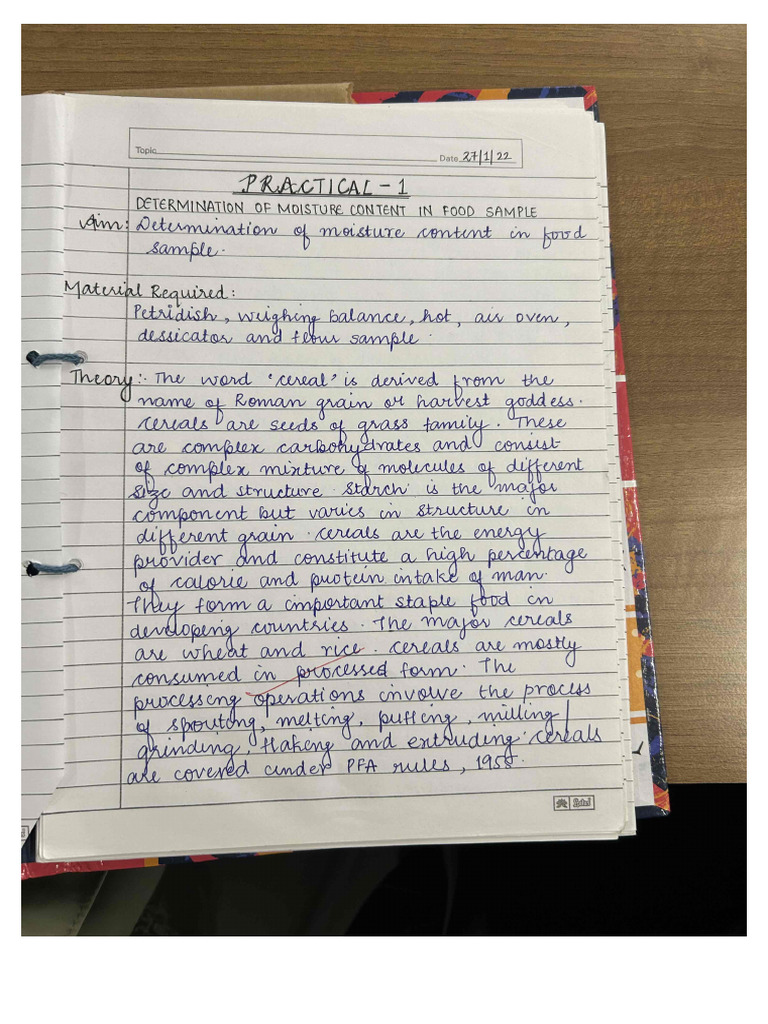 Topic
Date 27/1/22
PRACTICAL-1
DETERMINATION OF MOISTURE CONTENT IN FOOD SAMPLE
Aim: Determination of moisture content in food
sample.
Material Required:
Petridish, weighing balance, hot, air oven,
dessicator and flour sample.
Theory:- The word 'cereal' is derived from the
name of Roman grain or harvest goddess.
cereals are seeds of grass family. These
are complex carbohydrates and consist
of complex mixture of molecules of different
size and structure. Starch is the major
component but varies in structure in
different grain. cereals are the energy
provider and constitute a high percentage
of calorie and protein intake of man.
They form a important staple food in
developing countries. The major cereals
are wheat and rice. cereals are mostly
consumed in processed form. The
processing operations involve the process
of spouting, melting, puffing, milling/
grinding, flaking and extruding. cereals
are covered under PFA rules, 1955.